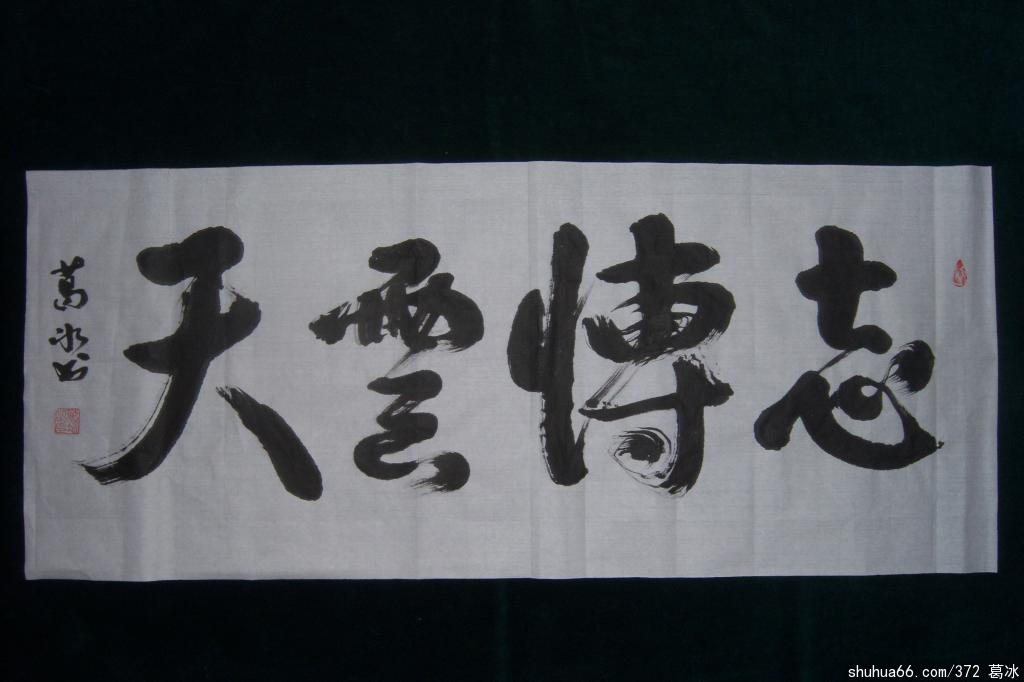 志博雲天
葛冰书
shuhua66.com/372 葛冰